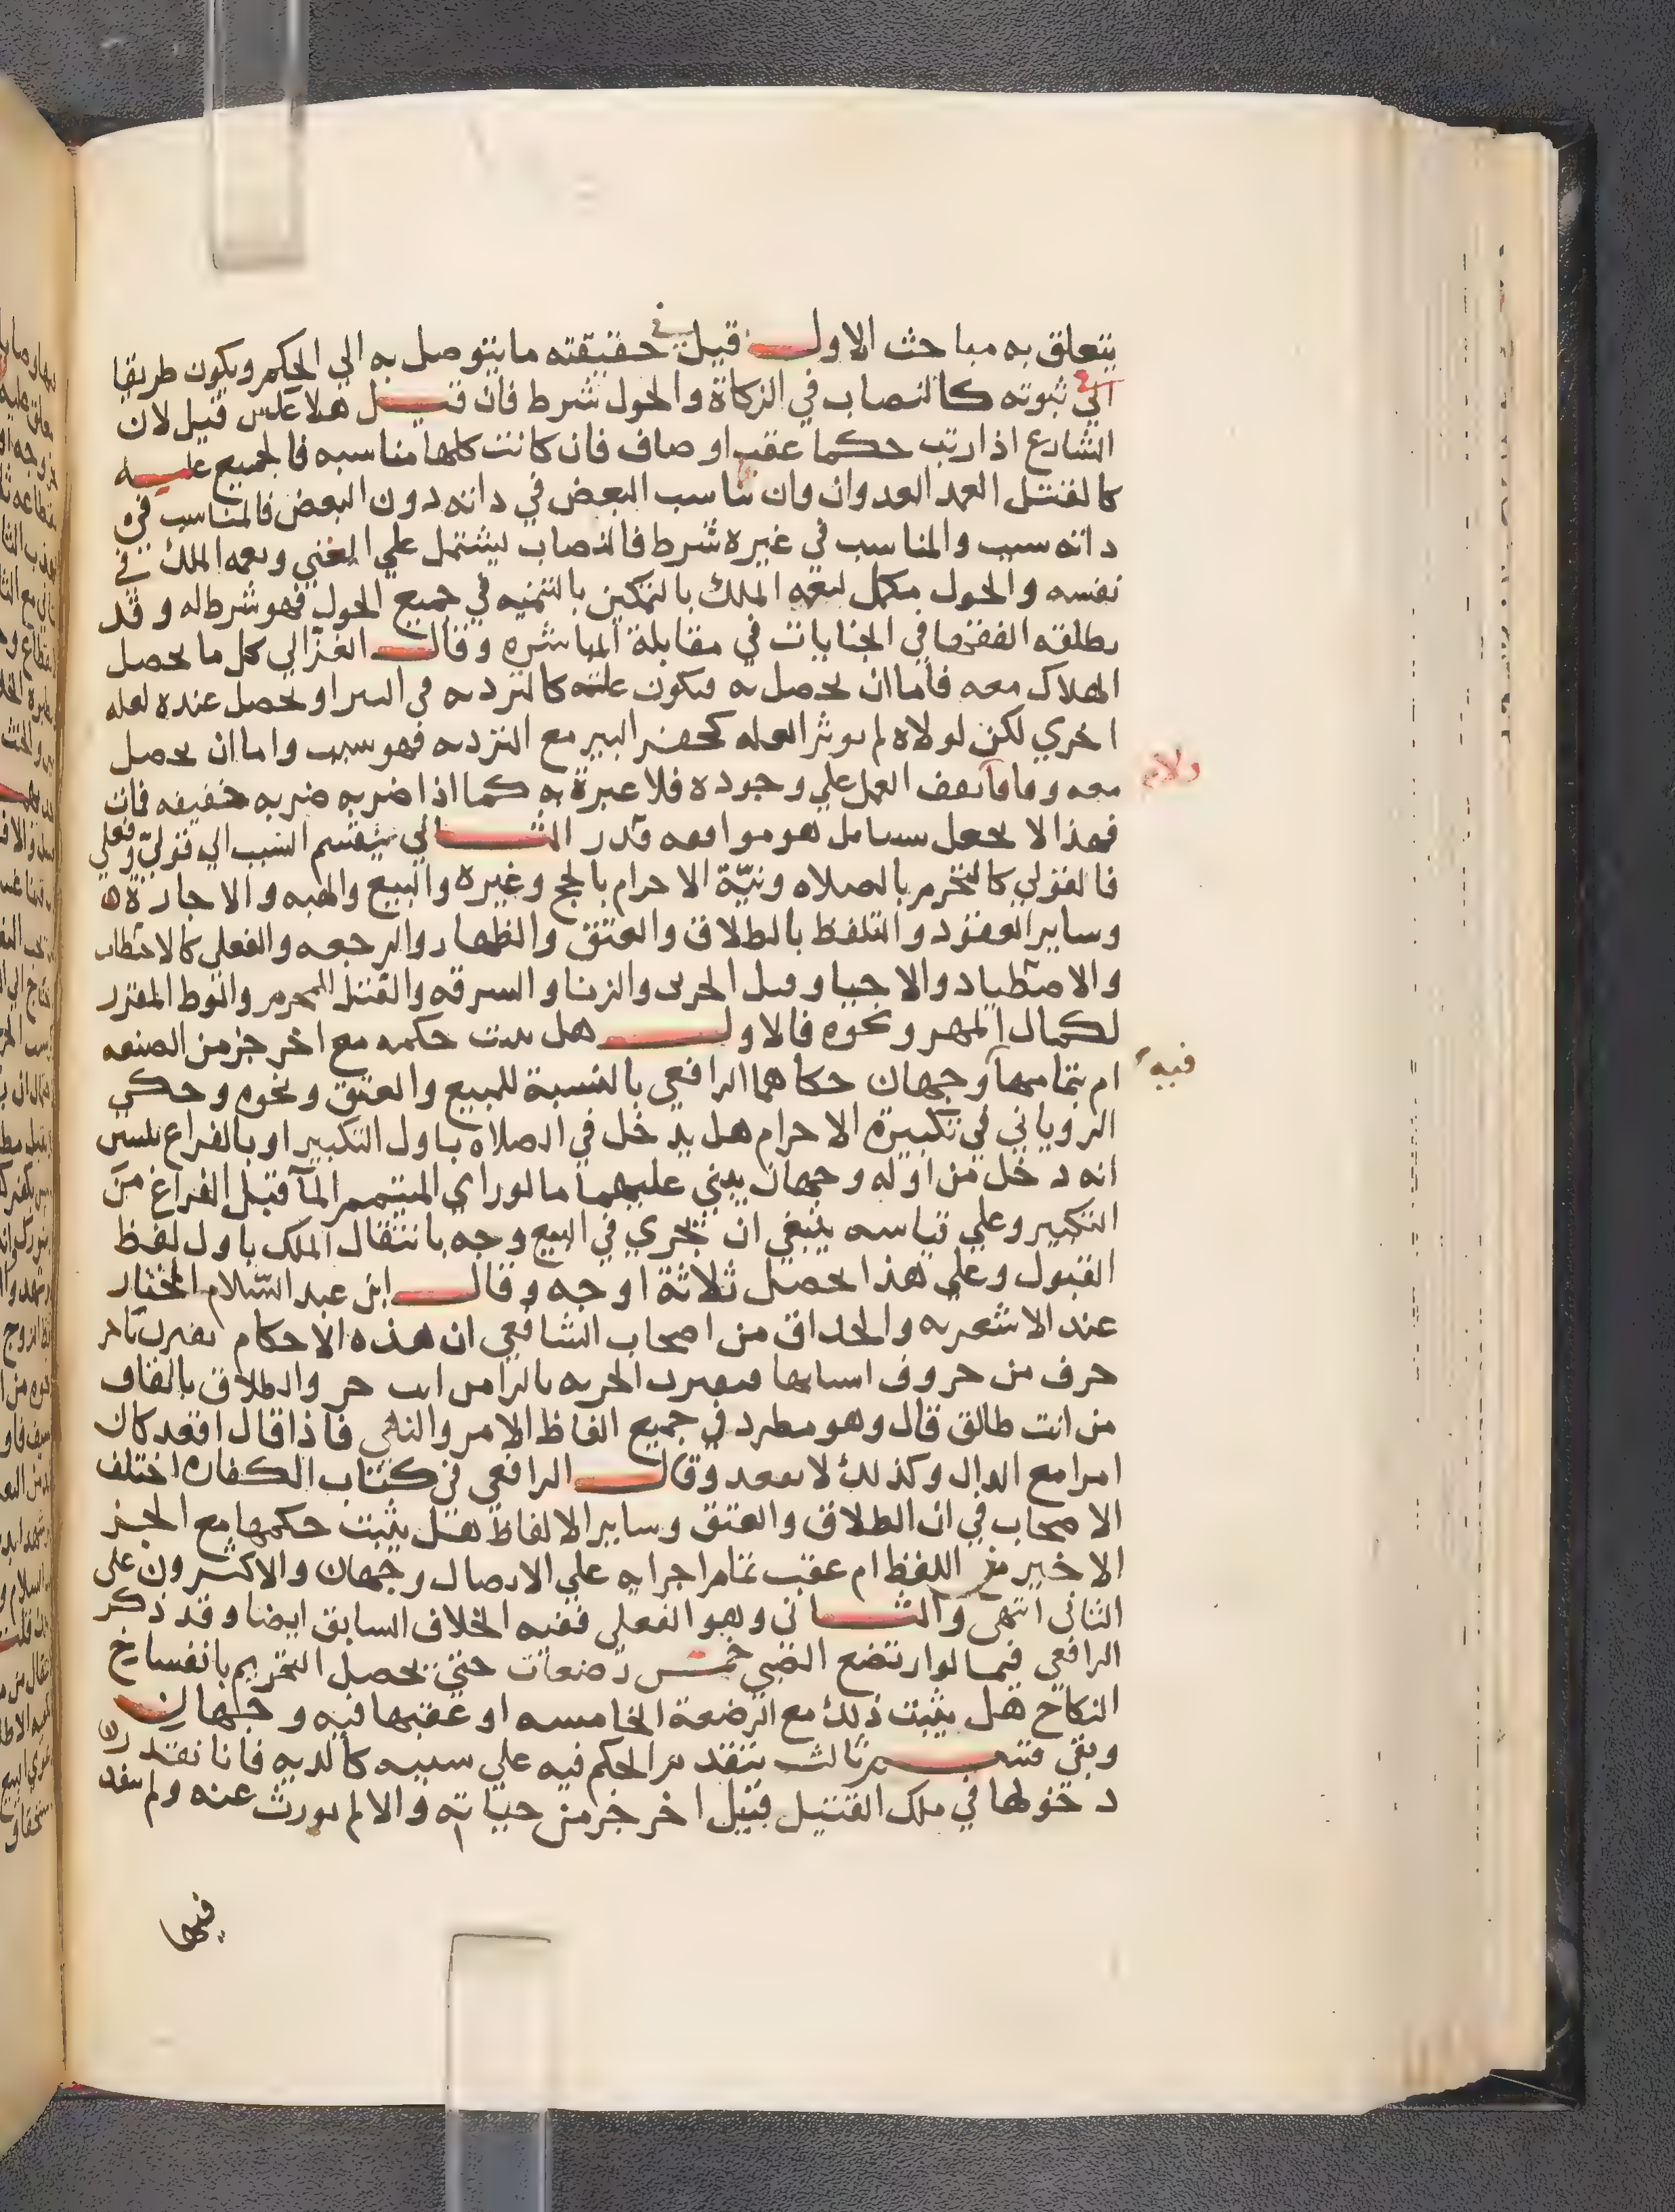 يتعلق به مباحث الاول قيل في حقيقته ما يتوصل به الي الحكم ويكون طريقا
الي ثبوته كالنصاب في الزكاة والحول شرط فان قيل هلا عكس قيل لان
الشارع اذا رتب حكما عقب اوصاف فان كانت كلها مناسبه فالجميع عليه
كالقتل العمد العدوان وان ناسب البعض في داته دون البعض فالمناسب في
داته سبب والمناسب في غيره شرط فالنصاب يشتمل علي الغني ونعمه الملك في
نفسه والحول مكمل لنعمه الملك بالتمكين بالتنميه في جميع الحول فهو شرط له وقد
يطلقه الفقها في الجنايات في مقابلة المباشره وقال الغزالي كل ما يحصل
الهلاك معه فاما ان يحصل به فيكون علته كالترديه في البير او يحصل عنده لعله
اخري لكن لولاه لم يوثر العله كحفر البير مع الترديه فهو سبب واما ان يحصل
معه وفاقا يقف العمل علي وجوده فلا عبرة به كما اذا ضربه ضربه خفيفه فات
فهذا لا يحعل هو موافقه قدر الثاني ينقسم السبب الي قولي وفعلي
فالقولي كالتحرم بالصلاه ونيّة الاحرام بالحج وغيره والبيع والهبه والاجارة
وساير العقود والتلفظ بالطلاق والعتق والظهار والرجعه والفعلي كالاحتطاب
والاصطياد والاحيا وقتل الحربى والزنا والسرقه والقتل المحرم والوط المقرر
لكمال المهر ونحوه فالاول هل يثبت حكمه مع اخر جز من الصنعه
ام بتمامها وجهان حكاهما الرافعي بالنسبة للبيع والعتق ونحوه وحكي
الروياني في تكبيرة الاحرام هل يدخل في الصلاه باول التكبير او بالفراغ يتبين
انه دخل من اوله وجهان يبني عليهما ما لو راي المتيمم المآ قبل الفراغ من
التكبير وعلي قياسه ينبغي ان يجري في البيع وجه بانتقال الملك باول لفظ
القبول وعلى هذا يحصل ثلاثة اوجه وقال ابن عبد السّلام المختار
عند الاشعريه والحداق من اصحاب الشافعي ان هذه الاحكام تقترن باخر
حرف من حروف اسبابها فتقترن الحريه بالرا من انت حر والطلاق بالقاف
من انت طالق قال وهو مطرد في جميع الفاظ الامر والنهي فاذا قال اقعد كان
امرا مع الدال وكذلك لا تقعد وقال الرافعي في كتاب الكفاره اختلف
الاصحاب في ان الطلاق والعتق وساير الالفاظ هل يثبت حكمها مع الجز
الاخير من اللفظ ام عقب تمام اجزايه علي الاتصال وجهان والاكثرون على
الثاني انتهى والثانى وهو الفعلى ففيه الخلاف السابق ايضا وقد ذكر
الرافعي فيما لو ارتضع الصبي خمس رضعات حتي يحصل التحريم بانفساخ
النكاح هل يثبت ذلك مع الرضعة الخامسه او عقبها فيه وجهان
وبقي قسم ثالث يتقدم الحكم فيه علي سببه كالديه فانا نقدر
دخولها في ملك القتيل قبيل اخر جز من حياته والا لم يورث عنه ولم ينفد
فيها